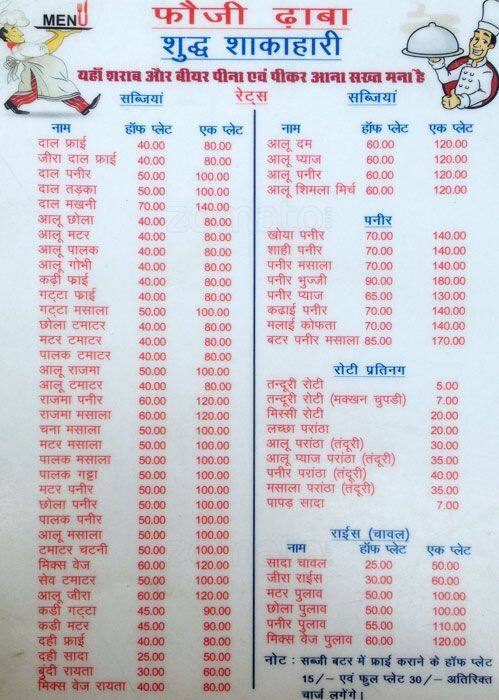 MENU
फौजी ढ़ाबा
शुद्ध शाकाहारी
यहाँ शराब और बीयर पीना एवं पीकर आना सख्त मना है
सब्जियां रेट्स सब्जियां
नाम हॉफ प्लेट एक प्लेट
दाल फ्राई 40.00 80.00
जीरा दाल फ्राई 40.00 80.00
दाल पनीर 50.00 100.00
दाल तड़का 50.00 100.00
दाल मखनी 70.00 140.00
आलू छोला 40.00 80.00
आलू मटर 40.00 80.00
आलू पालक 40.00 80.00
आलू गोभी 40.00 80.00
कढ़ी फ्राई 40.00 80.00
गट्टा फ्राई 40.00 80.00
गट्टा मसाला 50.00 100.00
छोला टमाटर 40.00 80.00
मटर टमाटर 40.00 80.00
पालक टमाटर 40.00 80.00
आलू राजमा 50.00 100.00
आलू टमाटर 40.00 80.00
राजमा पनीर 60.00 120.00
राजमा मसाला 60.00 120.00
चना मसाला 50.00 100.00
मटर मसाला 50.00 100.00
पालक मसाला 50.00 100.00
पालक गट्टा 50.00 100.00
मटर पनीर 50.00 100.00
छोला पनीर 50.00 100.00
पालक पनीर 50.00 100.00
आलू मसाला 50.00 100.00
टमाटर चटनी 50.00 100.00
मिक्स वेज 60.00 120.00
सेव टमाटर 50.00 100.00
आलू जीरा 60.00 120.00
कडी गट्टा 45.00 90.00
कडी मटर 45.00 90.00
दही फ्राई 40.00 80.00
दही सादा 25.00 50.00
बुंदी रायता 30.00 60.00
मिक्स वेज रायता 40.00 80.00
नाम हॉफ प्लेट एक प्लेट
आलू दम 60.00 120.00
आलू प्याज 60.00 120.00
आलू पनीर 60.00 120.00
आलू शिमला मिर्च 60.00 120.00
पनीर
खोया पनीर 70.00 140.00
शाही पनीर 70.00 140.00
पनीर मसाला 70.00 140.00
पनीर भुज्जी 90.00 180.00
पनीर प्याज 65.00 130.00
कढाई पनीर 70.00 140.00
मलाई कोफता 70.00 140.00
बटर पनीर मसाला 85.00 170.00
रोटी प्रतिनग
तन्दूरी रोटी 5.00
तन्दूरी रोटी (मक्खन चुपडी) 7.00
मिस्सी रोटी 20.00
लच्छा परांठा 20.00
आलू प्रांठा (तंदूरी) 30.00
आलू प्याज परांठा (तंदूरी) 35.00
पनीर प्रांठा (तंदूरी) 40.00
मसाला प्रांठा (तंदूरी) 35.00
पापड़ सादा 7.00
राईस (चावल)
नाम हॉफ प्लेट एक प्लेट
सादा चावल 25.00 50.00
जीरा राईस 30.00 60.00
मटर पुलाव 50.00 100.00
छोला पुलाव 50.00 100.00
पनीर पुलाव 55.00 110.00
मिक्स वेज पुलाव 60.00 120.00
नोट : सब्जी बटर में फ्राई कराने के हॉफ प्लेट
15/– एवं फुल प्लेट 30/– अतिरिक्त
चार्ज लगेंगे।
zomato